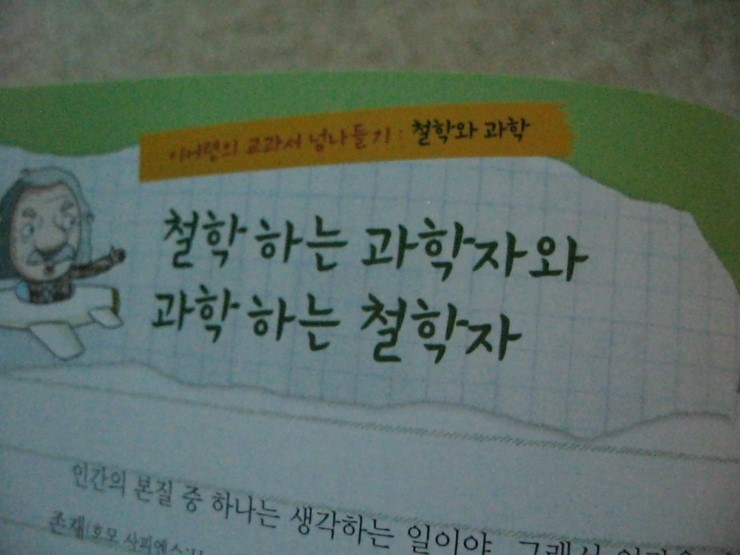 이어령의 교과서 넘나들기 : 철학와 과학
철학 하는 과학자와
과학 하는 철학자
인간의 본질 중 하나는 생각하는 일이야. 그래서
존재(호모 사피엔스